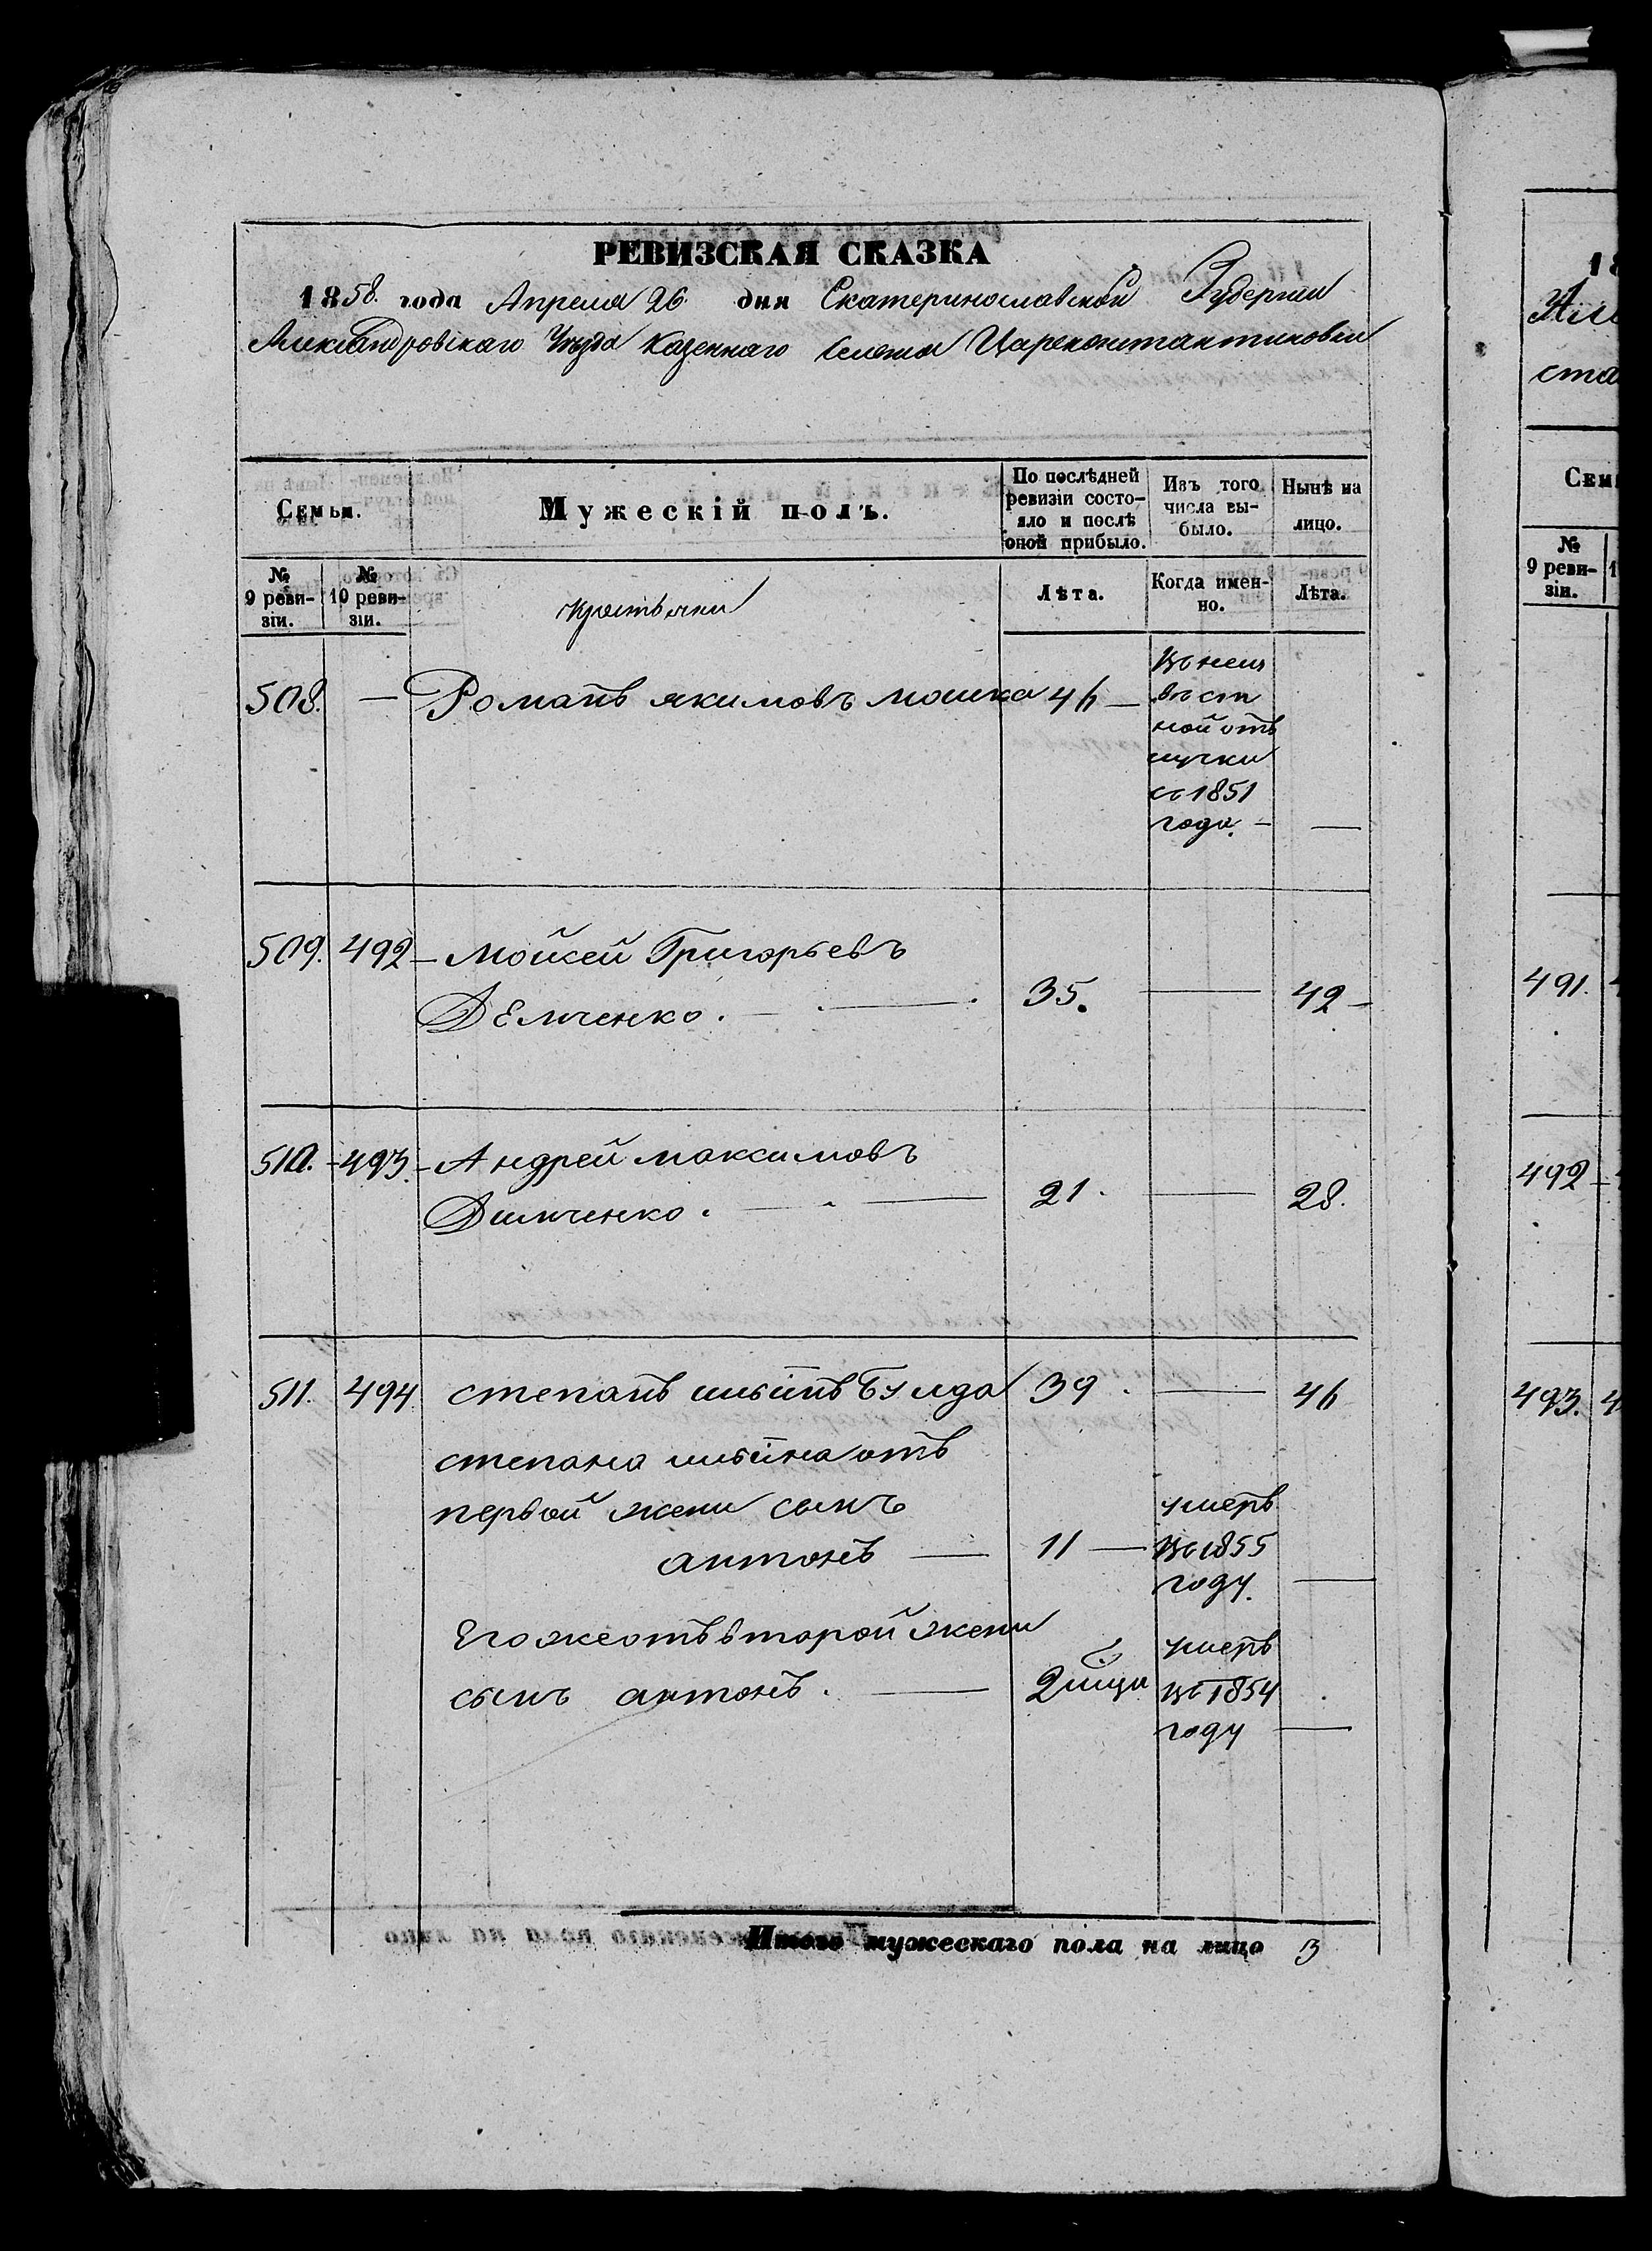 РЕВИЗСКАЯ СКАЗКА
1858. года Апреля 26. дня Екатеринославской Губернии
Александровскаго Уезда Казеннаго Селения Цареконстантиновки
Семьи.
Мужескiй полъ.
По послѣдней ревизiи состо-
яло и послѣ
оной прибыло.
Изъ того
числа вы-
было.
Нынѣ на
лицо.
№
9 реви-
зiи.
№
10 реви-
зiи.
крестьяни
Лѣта.
Когда имен-
но.
Лѣта.
508. — Романъ якимовъ мошка 46 —
въ неиз
вѣст
ной отъ
лучки
съ 1851
года. — —
509. 492 — Мойсей Григорьевъ
Демченко. — 35. — 42 —
510. — 493. — Андрей максимовъ
Димченко. — 21. — 28.
511. 494 степанъ ильинъ Булда 39. — 46
степана ильина отъ
первой жени сынъ
антонъ — 11 —
умеръ
въ 1855
году. —
Его же отъ второй жени
сынъ антонъ. — 2 мца
умеръ
въ 1854
году —
Итого мужескаго пола на лицо 3
18
ста
Семьи
№
9 реви-
зiи.
491.
492 —
493.